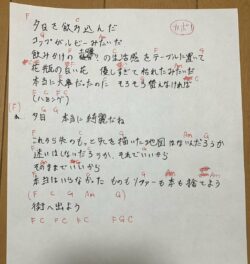 F C
夕日を飲み込んだ カポ1
F G
コップがルビーみたいだ
飲みかけの土曜の生活感をテーブルに置いて
花瓶の白い花 優しすぎて枯れたみたいだ
本当に大事だったのに そろそろ替えなければ
F C F C
(ハミング)
(F) C G Am G
a. 夕日 本当に綺麗だね
F C G Am G
これから先のもっと先を描いた地図はないんだろうか
迷いはしないだろうか、それでいいから
そのままでいいから
本当はいらなかった ものもソファーも本も捨てよう
(F C G Am G)
街へ出よう
F C F C F C F G C